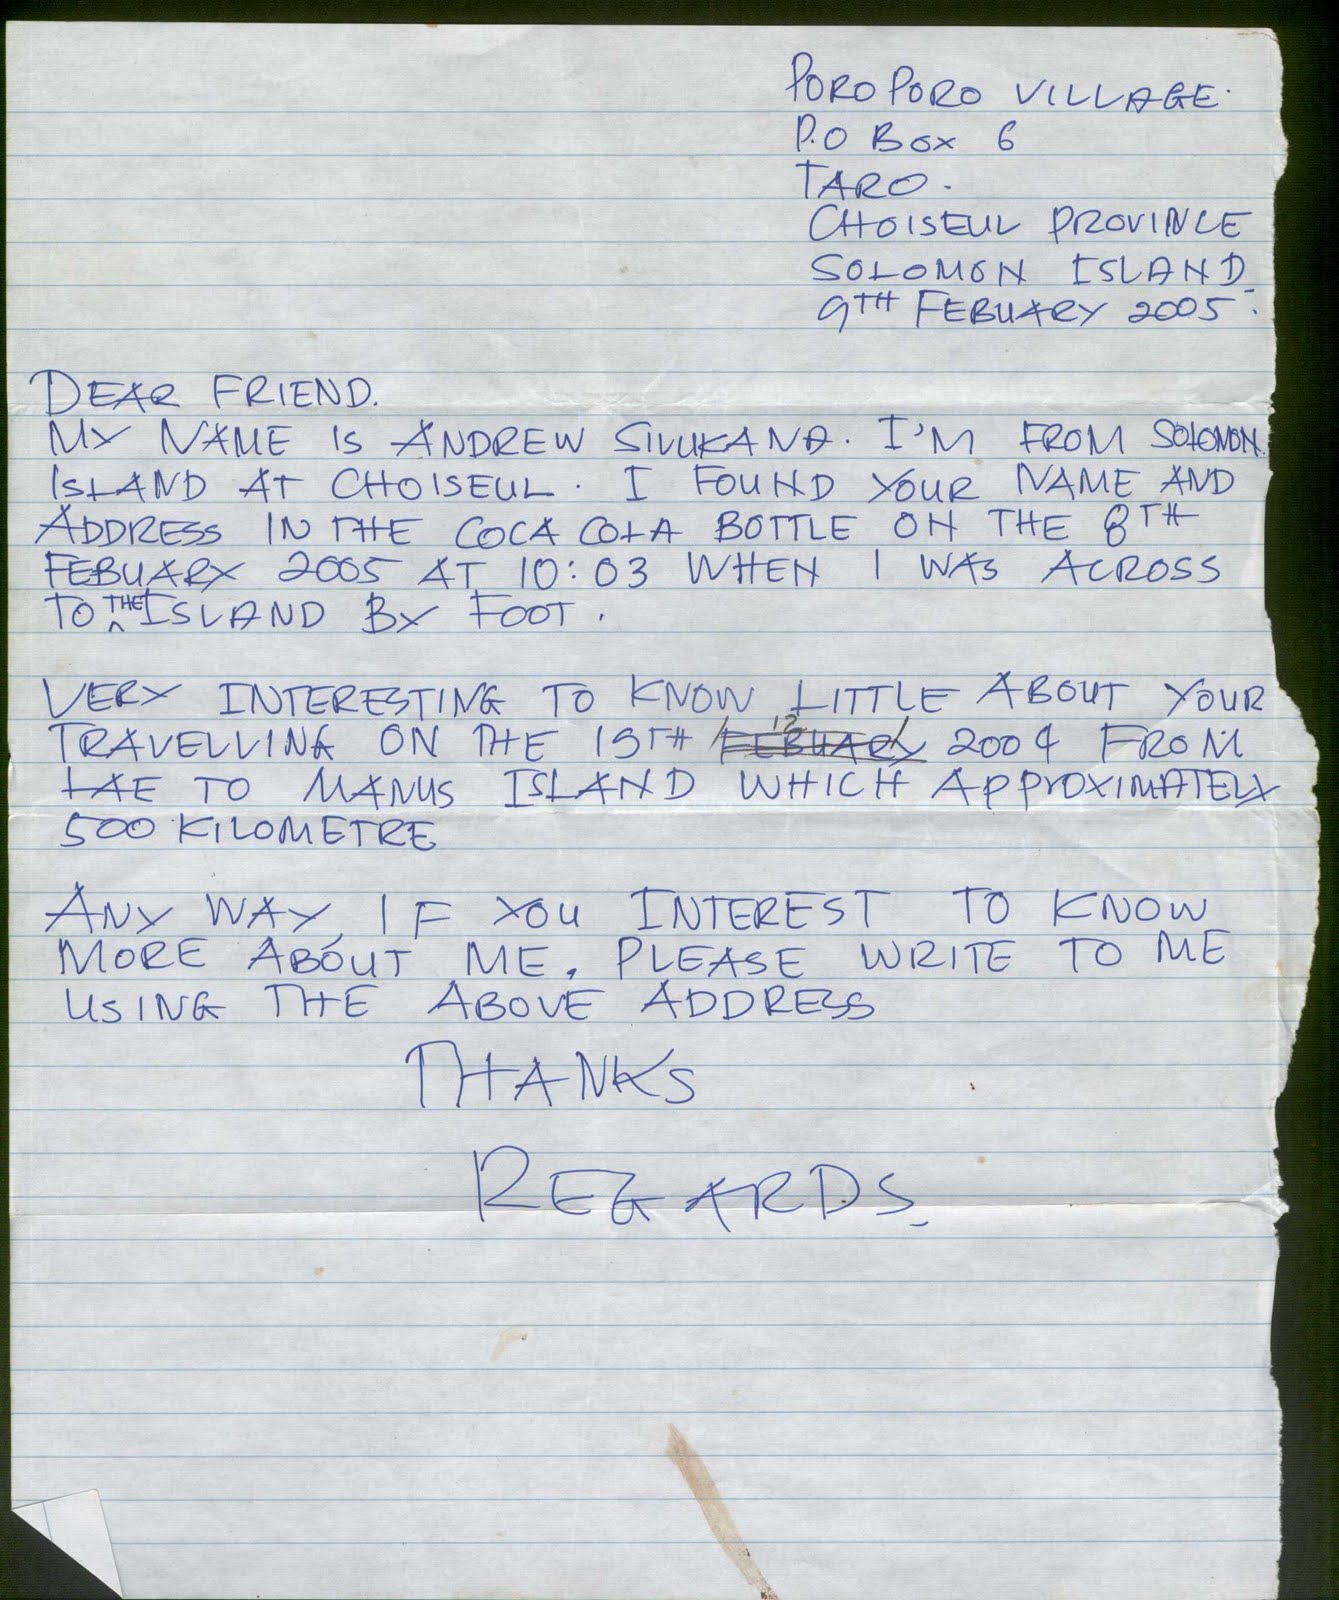 PORO PORO VILLAGE.
P.O BOX 6
TARO.
CHOISEUL PROVINCE
SOLOMON ISLAND.
9TH FEBUARY 2005.
DEAR FRIEND.
MY NAME IS ANDREW SIVUKANA. I'M FROM SOLOMON
ISLAND AT CHOISEUL. I FOUND YOUR NAME AND
ADDRESS IN THE COCA COLA BOTTLE ON THE 8TH
FEBUARY 2005 AT 10:03 WHEN I WAS ACROSS
TO THE ISLAND BY FOOT.
VERY INTERESTING TO KNOW LITTLE ABOUT YOUR
TRAVELLING ON THE 19TH /12/ FEBUARY 2004 FROM
LAE TO MANUS ISLAND WHICH APPROXIMATELY
500 KILOMETRE
ANY WAY, IF YOU INTEREST TO KNOW
MORE ABOUT ME, PLEASE WRITE TO ME
USING THE ABOVE ADDRESS
THANKS
REGARDS.